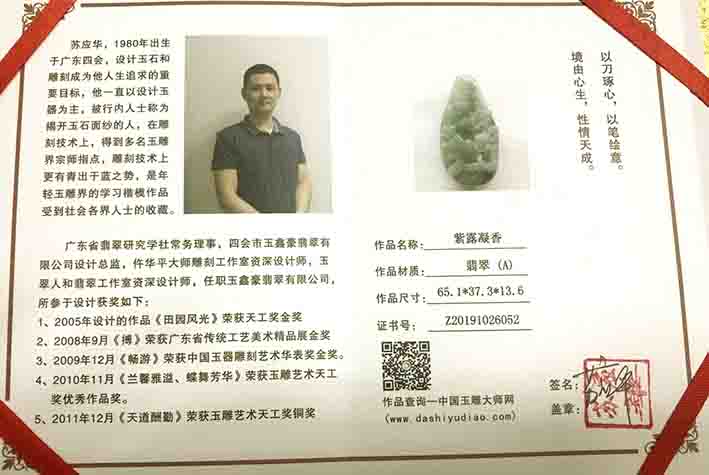 苏应华，1980年出生
于广东四会，设计玉石和
雕刻成为他人生追求的重
要目标，他一直以设计玉
器为主，被行内人士称为
揭开玉石面纱的人，在雕
刻技术上，得到多名玉雕
界宗师指点，雕刻技术上
更有青出于蓝之势，是年
轻玉雕界的学习楷模作品
受到社会各界人士的收藏。
广东省翡翠研究学社常务理事，四会市玉鑫豪翡翠有
限公司设计总监，仵华平大师雕刻工作室资深设计师，玉
翠人和翡翠工作室资深设计师，任职玉鑫豪翡翠有限公司，
所参于设计获奖如下：
1、2005年设计的作品《田园风光》荣获天工奖金奖
2、2008年9月《博》荣获广东省传统工艺美术精品展金奖
3、2009年12月《畅游》荣获中国玉器雕刻艺术华表奖金奖。
4、2010年11月《兰馨雅溢、蝶舞芳华》荣获玉雕艺术天工
奖优秀作品奖。
5、2011年12月《天道酬勤》荣获玉雕艺术天工奖铜奖
以刀琢心，以笔绘意。
境由心生，性情天成。
作品名称：紫露凝香
作品材质：翡翠（A）
作品尺寸：65.1*37.3*13.6
证书号：Z20191026052
作品查询—中国玉雕大师网
(www.dashiyudiao.com)
签名：
盖章：